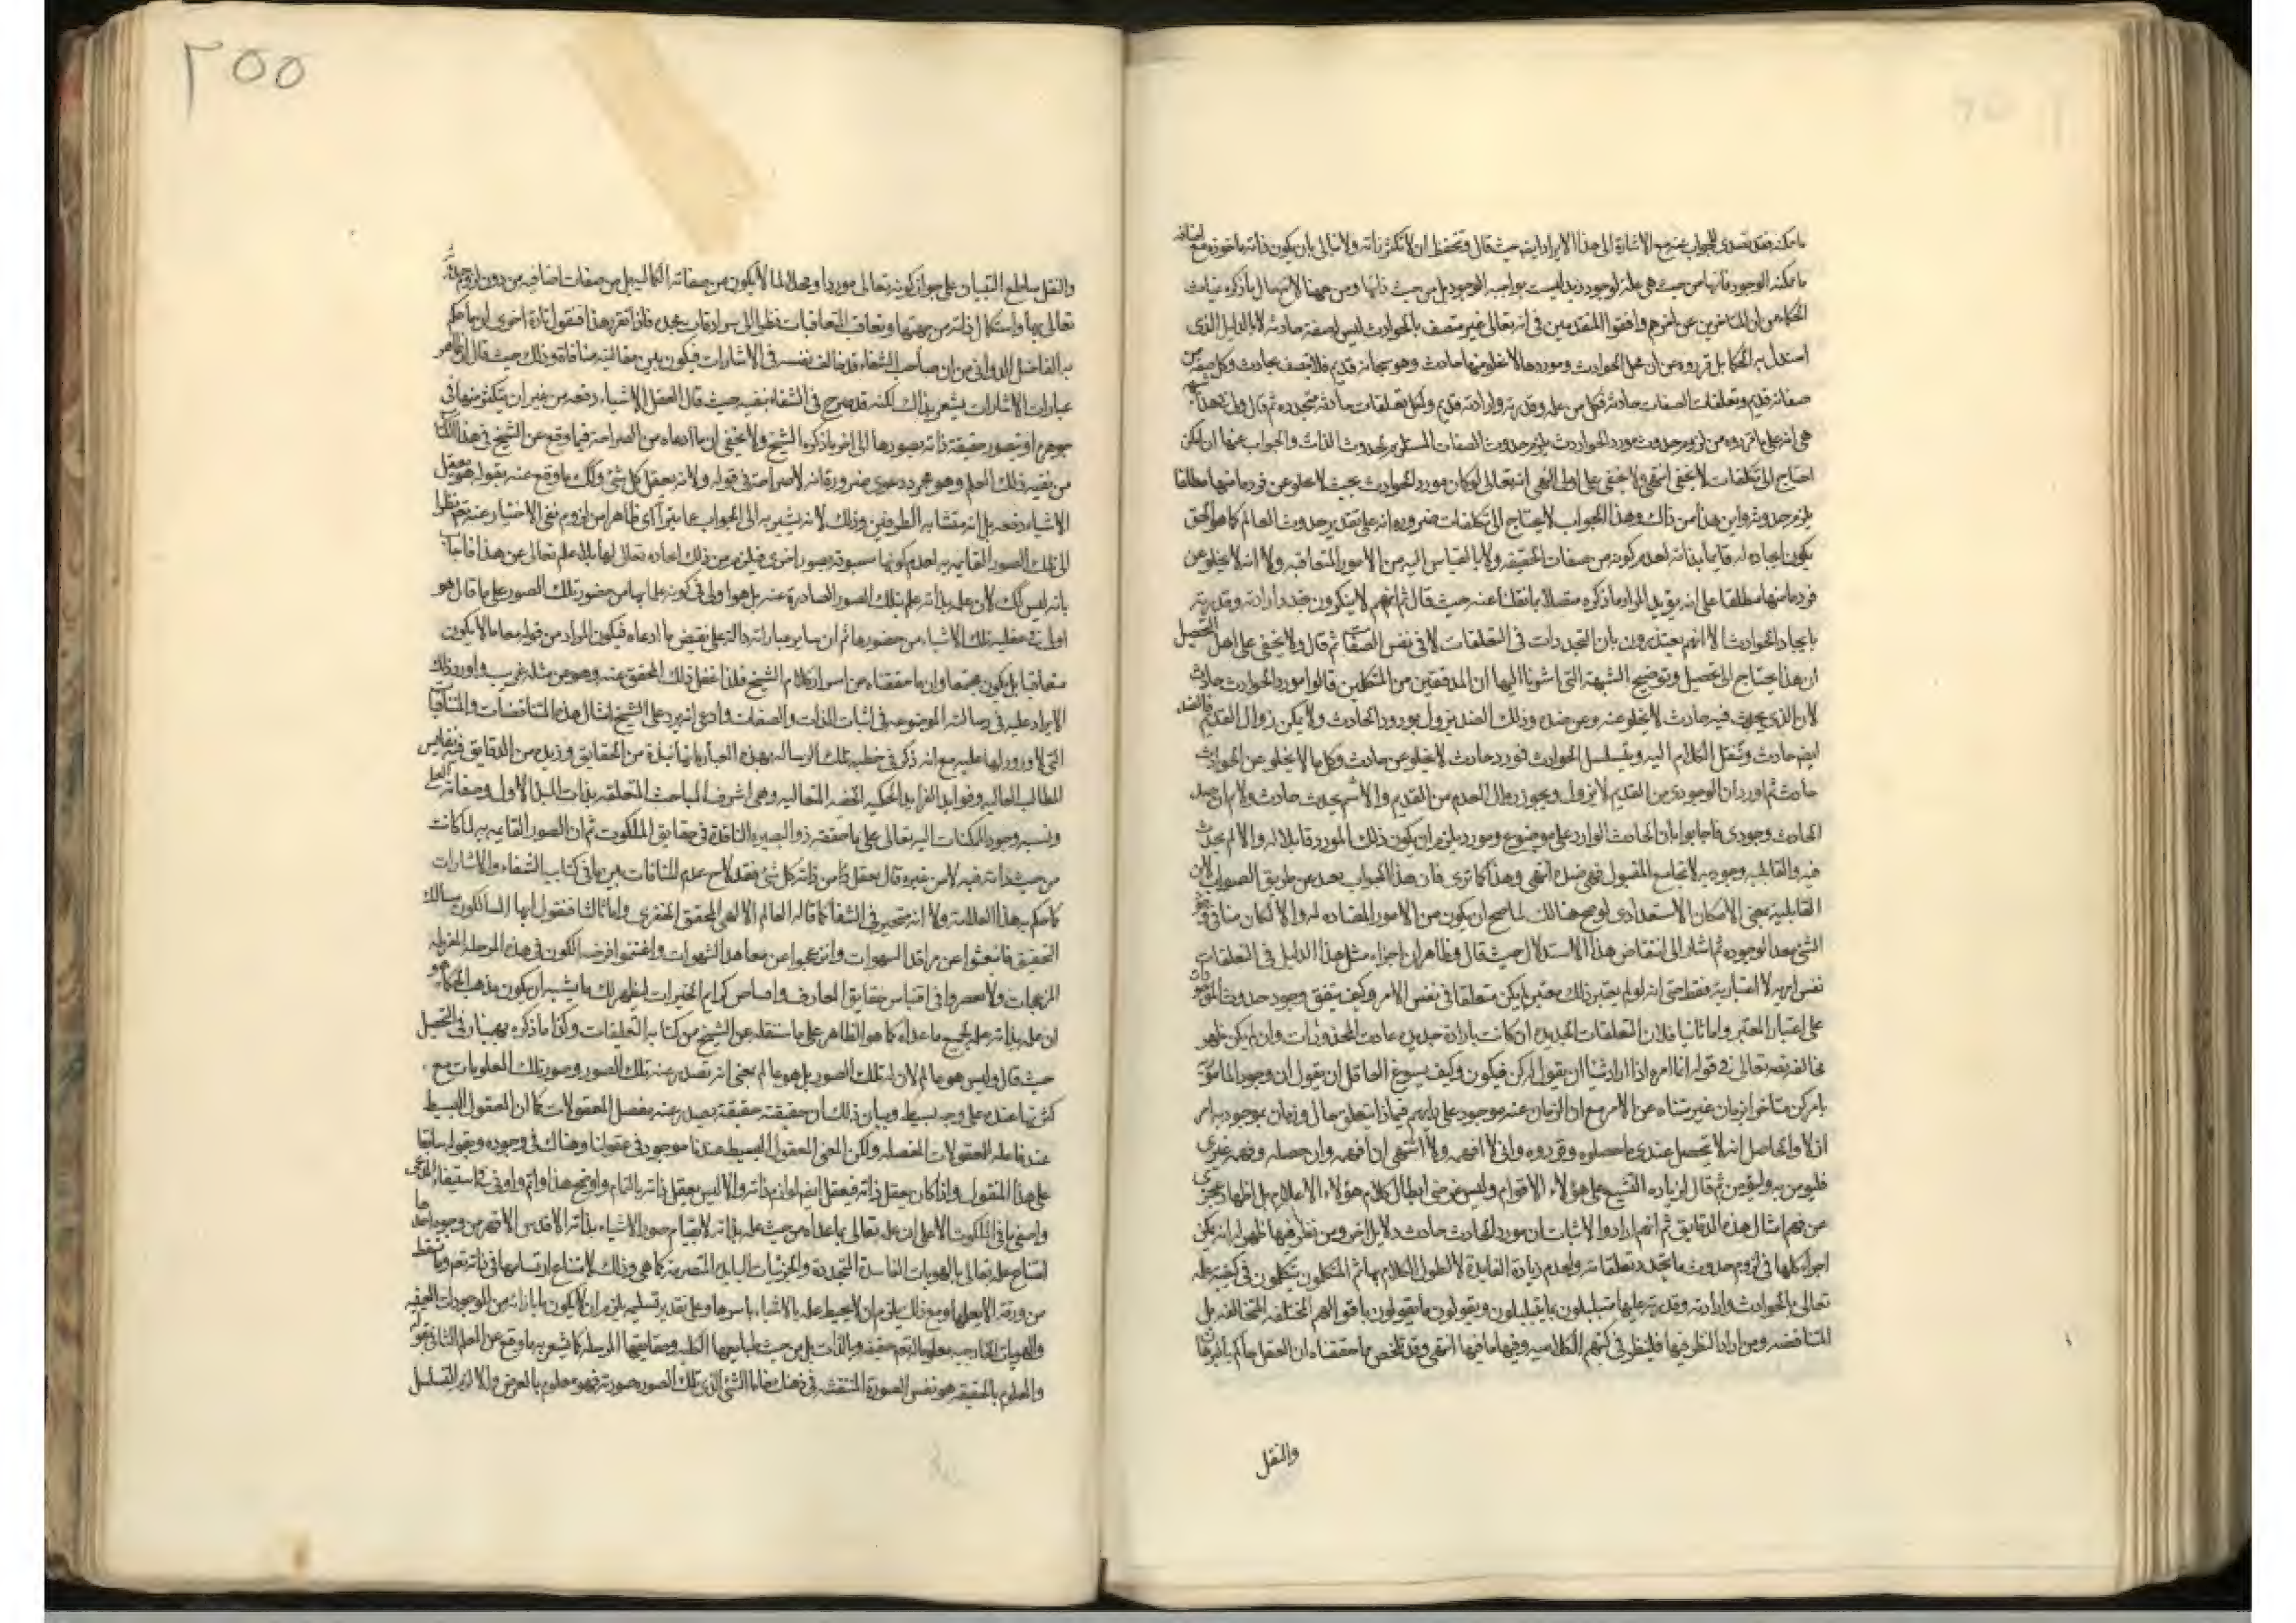 ما يمكنه فقد تصدى للجواب عنه مع الاشارة الى هذا الايراد ايضا حيث قال وتحفظ ان لا تكثر ذاته ولا نبالى بان يكون ذاته ماخوذة مع اضافة
ما ممكنة الوجود فانها من حيث هى علة لوجود زيد ليست بواجبة الوجود بل من حيث ذاتها ومن ههنا
الحكماء من ان المتاخرين عن اخرهم وافقوا المتقدمين فى انه تعالى غير متصف بالحوادث ليس له صفة حادثة لا بالدليل الذى
استدل به الحكما بل قرروه عن ان محل الحوادث وموردها لا يخلو منها حادث وهو سبحانه قديم فلا يتصف بحادث وكل صفة من
صفاته قديم وتعلقات الصفات حادثة فكل من علمه وقدرته وارادته قديم ولكل تعلقات حادثة متجددة ثم قال
هى انه على ما قرروه من لزوم حدوث مورد الحوادث يلزم حدوث الصفات المستلزم لحدوث الذات والجواب عنها ان امكن
احتاج الى تكلفات لا يخفى انتهى ولا يخفى على اولى النهى انه تعالى لو كان مورد الحوادث بحيث لا يخلو عن فرد ما منها مطلقا
يلزم حدوثه واين هذا من ذاك وهذا الجواب لا يحتاج الى تكلفات ضرورة انه على تقدير حدوث العالم كما هو الحق
يكون ايجاده له قايما بذاته لعدم كونه من صفات الحقيقة ولا بالقياس اليه من الامور المتعاقبة ولا انه لا يخلو عن
فرد ما منها مطلقا على انه يؤيد المراد ما ذكره متصلا بما نقلنا عنه حيث قال ثم انهم لا ينكرون تجدد ارادته وقدرته
بايجاد الحوادث الا انهم يعتذرون بان التجددات فى التعلقات لا فى نفس الصفات ثم قال ولا يخفى على اهل التحصيل
ان هذا يحتاج الى تحصيل وتوضيح الشبهة التى اشرنا اليها ان المدققين من المتكلمين قالوا مورد الحوادث حادث
لان الذى يحدث فيه حادث لا يخلو عنه وعن ضده وذلك الضد يزول بورود الحادث ولا يمكن زوال القديم فالضد
ايضا حادث وننقل الكلام اليه ويتسلسل الحوادث فمورد حادث لا يخلو عن حادث وكل ما لا يخلو عن الحوادث
حادث ثم اورد ان الوجودى من القديم لا يزول ويجوز زوال العدم من القديم والا لم يحدث حادث ولا نم ان ضد
الحادث وجودى فاجابوا بان الحادث الوارد على موضوع ومورد يلزم ان يكون ذلك المورد قابلا له والا لم يحدث
فيه والقابلية وجودية لا تجامع المقبول فهى ضده انتهى وهذا كما ترى فان هذا الجواب بعيد عن طريق الصواب لان
القابلية بمعنى الامكان الاستعدادى لو صح هنالك لما صح ان يكون من الامور المضادة له والا لكان منافى
الشئ بعد الوجوده ثم اشار الى انتقاض هذا الاستدلال حيث قال وظاهر ان اجزاء مثل هذا الدليل فى التعلقات
نفس امرية لا اعتبارية فقط حتى انه لو لم يعتبر ذلك معتبر لم يكن متعلقا فى نفس الامر وكيف يتفق وجود حدوث
على اعتبار المعتبر واما ثانيا فلان التعلقات الجديدة ان كانت بارادة جديدة عادت المحذورات وان لم يكن ظهر
مخالفته تعالى فى قوله انما امره اذا اراد شيئا ان يقول له كن فيكون وكيف يسوغ العاقل ان يقول ان وجود المامور
بامر كن متاخر بزمان غير متناه عن الامر مع ان الزمان عنه موجود على رايهم فبماذا يتعلق حال وزمان بموجود بامر
ازلا والحاصل انه لا يتحصل عندى ما حصلوه وقرروه وانى لا افهمه ولا اشتهى ان افهمه وان حصله وفهمه غيرى
فليؤمن به وليؤمن ثم قال لزيادة التشنيع على هؤلاء الاقوام وليس غرضى ابطال كلام هؤلاء الاعلام بل اظهار عجزى
من فهم امثال هذه الدقايق ثم انهم ارادوا لاثبات ان مورد الحادث حادث دلايل اخر ومن نظر فيها ظهر له انه يمكن
اجراء كلها فى لزوم حدوث ما يتجدد تعلقاته ولعدم زيادة الفايدة لا نطول الكلام بها ثم المتكلمون يتكلمون فى كيفية علمه
تعالى بالحوادث وارادته وقدرته عليها متبلبلون بما يتبلبلون ويقولون ما يقولون باقوالهم المختلفة المتخالفة بل
المتناقضة ومن اراد النظر فيها فلينظر فى كتبهم الكلامية وفيها ما فيها انتهى وقد تلخص مما حققناه ان العقل حاكم
والنقل
٢٥٥
والنقل ساطع التبيان على جواز كونه تعالى موردا ومحلا لما لا يكون من صفاته الكمالية بل من صفات اضافية من دون لزوم
تعالى بها واستكمال ذاته من جهتها وتعاقب المتعاقبات نظرا الى فاذا تقرر هذا فنقول تارة اخرى ان ما حكم
به الفاضل الدوانى من ان صاحب الشفاء قد خالف نفسه فى الاشارات فيكون بين مقالتيه منافاة وذلك حيث قال ان ظاهر
عبارات الاشارات يشعر بذلك لكنه قد صرح فى الشفاء بنفيه حيث قال العقل الاشياء دفعة من غير ان يتكثر منها فى
جوهره او يتصور حقيقة ذاته بصورها الى اخر ما ذكره الشيخ ولا يخفى ان ما ادعاه من الصراحة فيما وقع عن الشيخ فى هذا الكتاب
من نفيه ذلك العلم وهو مجرد دعوى ضرورة انه لا صراحة فى قوله ولانه يعقل كل شئ وكك ما وقع عنه بقوله هو يعقل
الاشياء دفعة بل انه متشابه الطرفين وذلك لانه يشير به الى الجواب عما يتراآى ظاهرا من لزوم نفى الاختيار عنه تعم نظرا
الى تلك الصور القايمة به لعدم كونها مسبوقة بصور اخرى فيلزم من ذلك ايجاده تعالى لها بلا علم تعالى عن هذا فاجاب
بانه ليس كك لان علمه بذاته علم بتلك الصور الصادرة عنه بل هو اولى فى كونه علما بها من حضور تلك الصور على ما قال هو
اولى فى عقلية تلك الاشياء من حضورها ثم ان ساير عباراته دالة على نقيض ما ادعاه فيكون المراد من قوله معا ما لا يكون
متعاقبا بل يكون مجتمعا وان ما حققناه من اسرار كلام الشيخ فلذا غفل ذلك المحقق عنه وهو من مثله غريب واورد ذلك
الايراد عليه فى رسالته الموضوعة فى اثبات الذات والصفات وادعى انه يرد على الشيخ امثال هذه المتناقضات والمتنافيات
التى لا ورود لها عليه مع انه ذكر فى خطبة تلك الرسالة بهذه العبارة بانها نبذة من الحقايق وزبدة من الدقايق فيه نفايس
المطالب العالية وفوايد الفرايد الحكمية الحقة المتعالية وهى اشرف المباحث المتعلقة بذات المبدا الاول وصفاته العلى
ونسبة وجود الممكنات اليه تعالى على ما حققه ذو البصيرة الناقدة فى حقايق الملكوت ثم ان الصور القايمة به لما كانت
من حيث ذاته فيه لا من غيره قال يعقل من ذاته كل شئ فقد لاح عدم المنافات بين ما فى كتاب الشفاء والاشارات
كما حكم به هذا العلامة ولا انه متحير فى الشفا كما قاله العالم الالهى المحقق الخفرى واما ثالثا فنقول ايها السالكون مسالك
التحقيق فانبعثوا عن مراقد السهوات وانزعجوا عن معاهد الشهوات واغتنموا فرصة الكون فى هذه المرحلة
المزعجات ولا تقصروا فى اقتباس حقايق المعارف كرايم الخيرات ليظهر لك ما يشبه ان يكون مذهب الحكما هو
ان علمه بذاته علة لجميع ما عداه كما هو الظاهر على ما سننقله عن الشيخ من كتابه التعليقات وكذا ما ذكره بهمنيار فى التحصيل
حيث قال وليس هو عالم لان له تلك الصور بل هو عالم بمعنى انه تصدر عنه تلك الصور وصور تلك المعلومات مع
كثرتها عنده على وجه بسيط وبيان ذلك ان حقيقته حقيقة يصدر عنه مفصل المعقولات كما ان المعقول البسيط
عندنا علة المعقولات المفصلة ولكن المعنى المعقول البسيط عندنا موجود فى عقولنا وهناك فى وجوده وبقوله سابقا
على هذا المنقول واذا كان يعقل ذاته فيعقل ايضا لوازم ذاته والا ليس يعقل ذاته بالتمام واوضح هذا واتم واوفى
وما فى الملكوت الاعلى ان علمه تعالى بما عداه من حيث علمه بذاته لا بقيام صور الاشياء بذاته الاقدس الاقهر من وجوه احدها
امتناع علمه تعالى بالهويات الفاسدة المتجددة والجزئيات المتصرمة كما هى وذلك لامتناع ارتسامها فى ذاته تعم وما تسقط
من ورقة الا يعلمها ومع ذلك يلزم ان لا يحيط علمه بالاشياء باسرها وعلى تقدير تسليمه يلزم ان لا يكون ما بازائه من الموجودات العينية
والهويات الخارجية معلوما له تعم حقيقة وبالذات بل من حيث طبايعها الكلية وحقايقها المرسلة كما يشعر به ما وقع عن المعلم الثانى بقوله
والمعلوم بالحقيقة هو نفس الصورة المنتقشة فى ذهنك واما الشئ الذى تلك الصور صورته فهو معلوم بالعرض والا لزم التسلسل